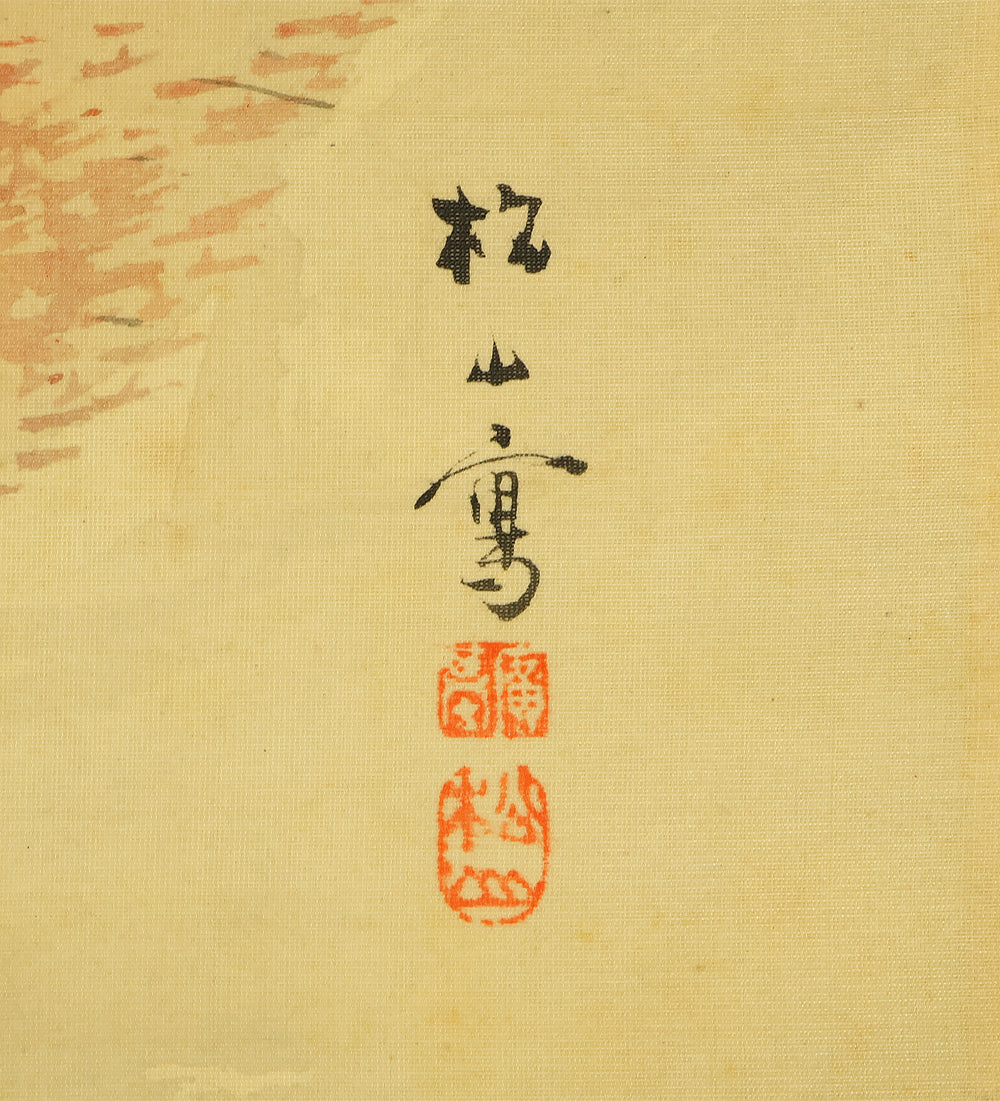 松山寫
松山